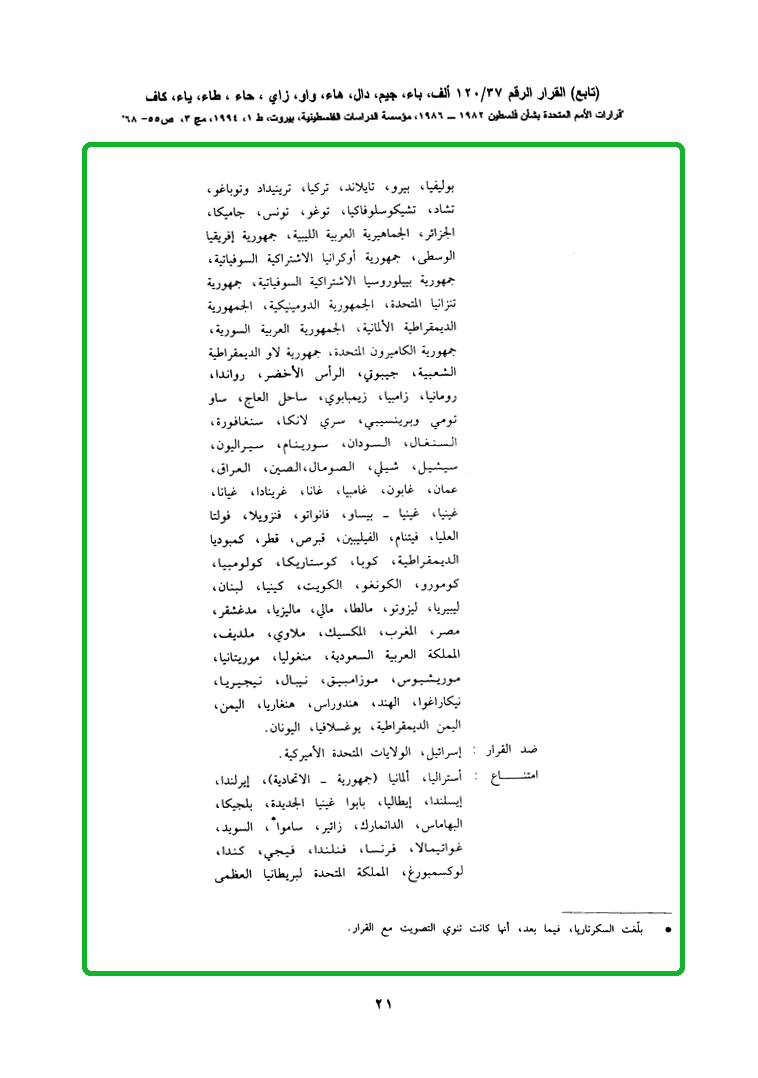 (تابع) القرار الرقم ١٢٠/٣٧ ألف، باء، جيم، دال، هاء، واو، زاي ، حاء ، طاء، ياء، كاف
"قرارات الأمم المتحدة بشأن فلسطين ١٩٨٢ ــ ١٩٨٦، مؤسسة الدراسات الفلسطينية، بيروت، ط ١، ١٩٩٤، مج ٣، ص٥٥- ٦٨"
بوليفيا، بيرو، تايلاند، تركيا، ترينيداد وتوباغو،
تشاد، تشيكوسلوفاكيا، توغو، تونس، جاميكا،
الجزائر، الجماهيرية العربية الليبية، جمهورية إفريقيا
الوسطى، جمهورية أوكرانيا الاشتراكية السوفياتية،
جمهورية بييلوروسيا الاشتراكية السوفياتية، جمهورية
تنزانيا المتحدة، الجمهورية الدومينيكية، الجمهورية
الديمقراطية الألمانية، الجمهورية العربية السورية،
جمهورية الكاميرون المتحدة، جمهورية لاو الديمقراطية
الشعبية، جيبوتي، الرأس الأخضر، رواندا،
رومانيا، زامبيا، زيمبابوي، ساحل العاج، ساو
تومي وبرينسيبي، سري لانكا، سنغافورة،
السنغال، السودان، سورينام، سيراليون،
سيشيل، شيلي، الصومال،الصين، العراق،
عمان، غابون، غامبيا، غانا، غرينادا، غيانا،
غينيا، غينيا ـ بيساو، فانواتو، فنزويلا، فولتا
العليا، فيتنام، الفيليبين، قبرص، قطر، كمبوديا
الديمقراطية، كوبا، كوستاريكا، كولومبيا،
كومورو، الكونغو، الكويت، كينيا، لبنان،
ليبيريا، ليزوتو، مالطا، مالي، ماليزيا، مدغشقر،
مصر، المغرب، المكسيك، ملاوي، ملديف،
المملكة العربية السعودية، منغوليا، موريتانيا،
موريشيوس، موزامبيق، نيبال، نيجيريا،
نيكاراغوا، الهند، هندوراس، هنغاريا، اليمن،
اليمن الديمقراطية، يوغسلافيا، اليونان.
ضد القرار : إسرائيل، الولايات المتحدة الأميركية.
امتنـــــاع : أستراليا، ألمانيا (جمهورية ـ الاتحادية)، إيرلندا،
إيسلندا، إيطاليا، بابوا غينيا الجديدة، بلجيكا،
البهاماس، الدانمارك، زائير، ساموا*، السويد،
غواتيمالا، فرنسا، فنلندا، فيجي، كندا،
لوكسمبورغ، المملكة المتحدة لبريطانيا العظمى
* بلّغت السكرتاريا، فيما بعد، أنها كانت تنوي التصويت مع القرار.
٢١